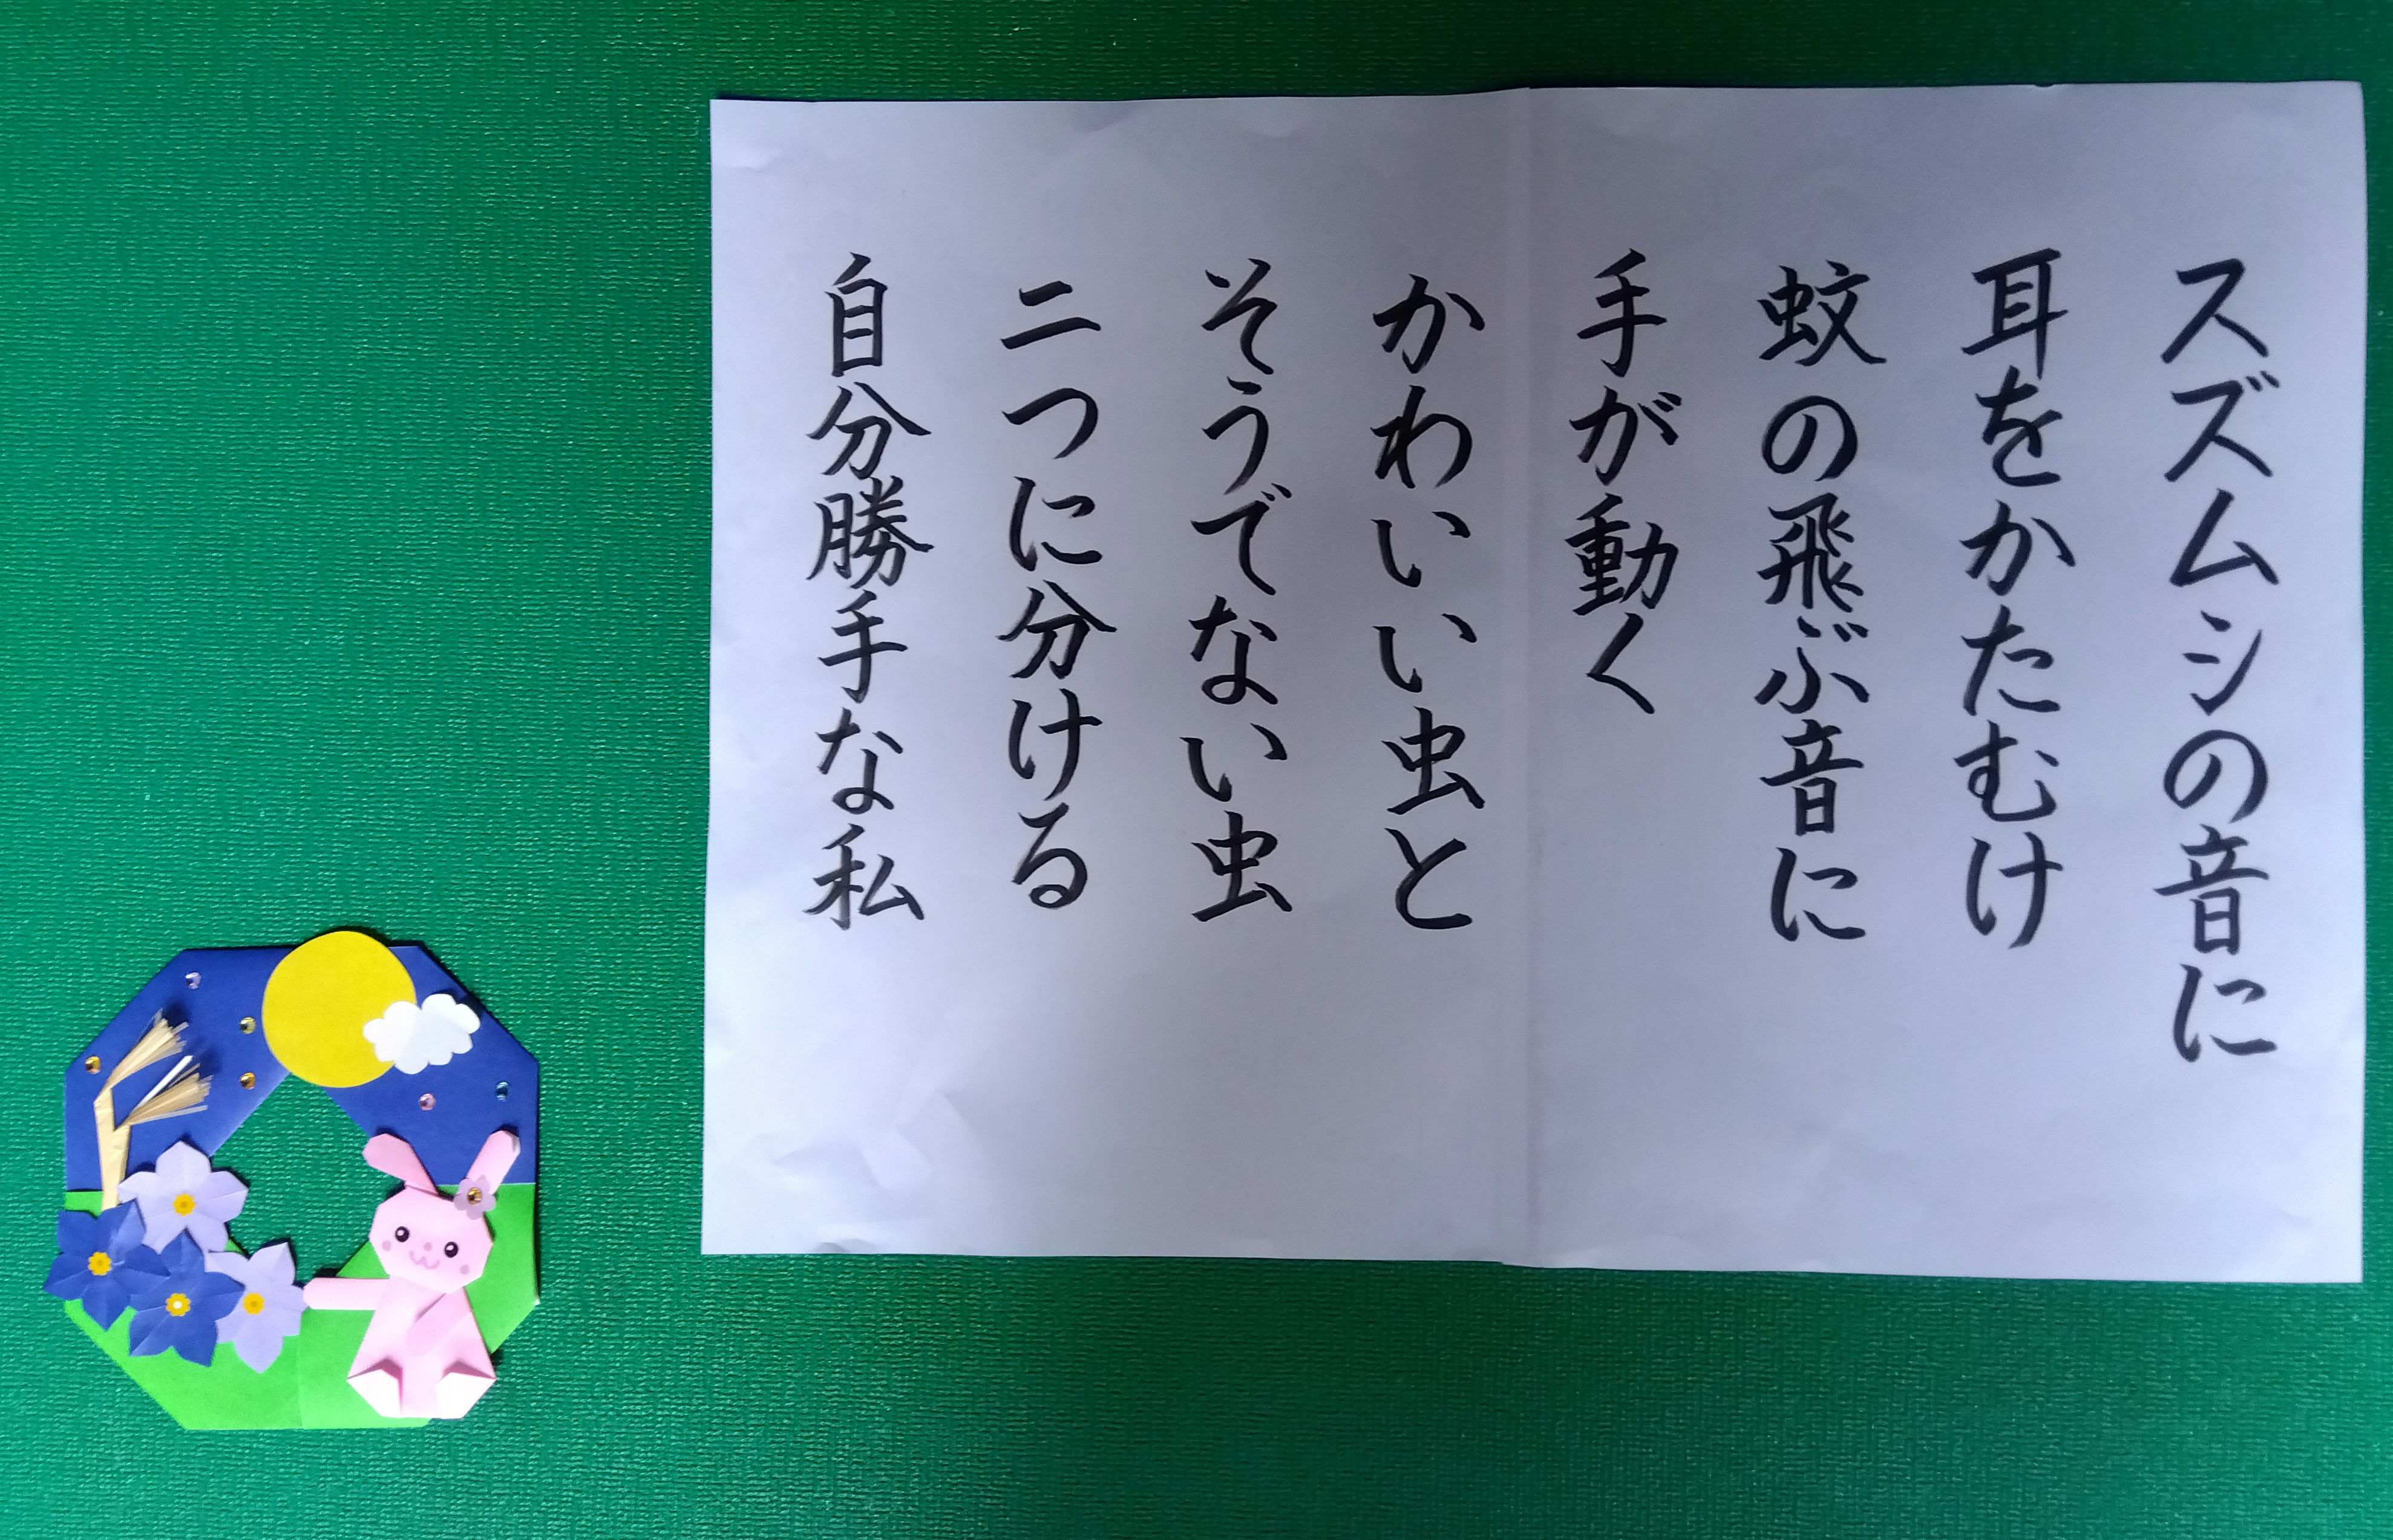 スズムシの音に
耳をかたむけ
蚊の飛ぶ音に
手が動く
かわいい虫と
そうでない虫
二つに分ける
自分勝手な私